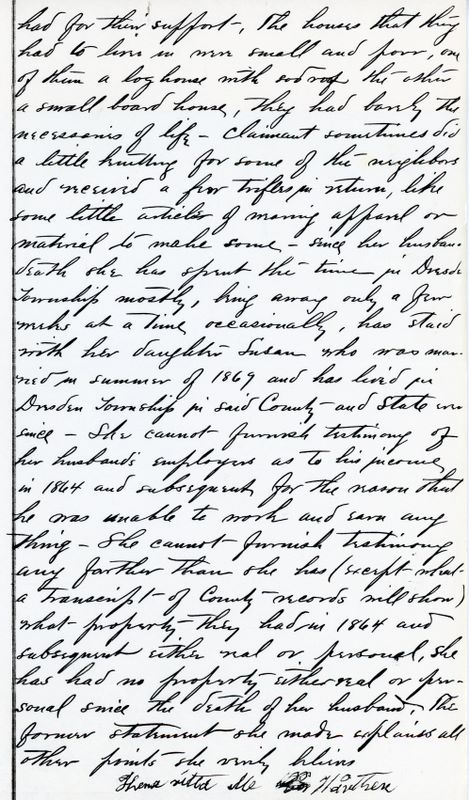 had for their support, The houses that they
had to live in were small and poor, one
of them a log house with sod roof the other
a small board house, they had barely the
necessaries of life - Claimant sometimes did
a little knitting for some of the neighbors
and received a few trifles in return, like
some little articles of wearing apparel or
material to make some, - since her husban
death she has spent the time in Dresde
Township mostly, being away only a few
weeks at a time, occasionally, has staid
with her daughter Susan who was mar-
ried in summer of 1869 and has lived in
Dresden Township in said County and State ever
since - She cannot furnish testimony of
her husbands employers as to his income
in 1864 and subsequent, for the reason that
he was unable to work and earn any
thing - She cannot furnish testimony
any farther than she has (except what
a transcript of County records will show)
what property they had in 1864 and
subsequent either real or personal, she
has had no property either real or per-
sonal since the death of her husband, The
former statement she made explains all
other points she verily believes